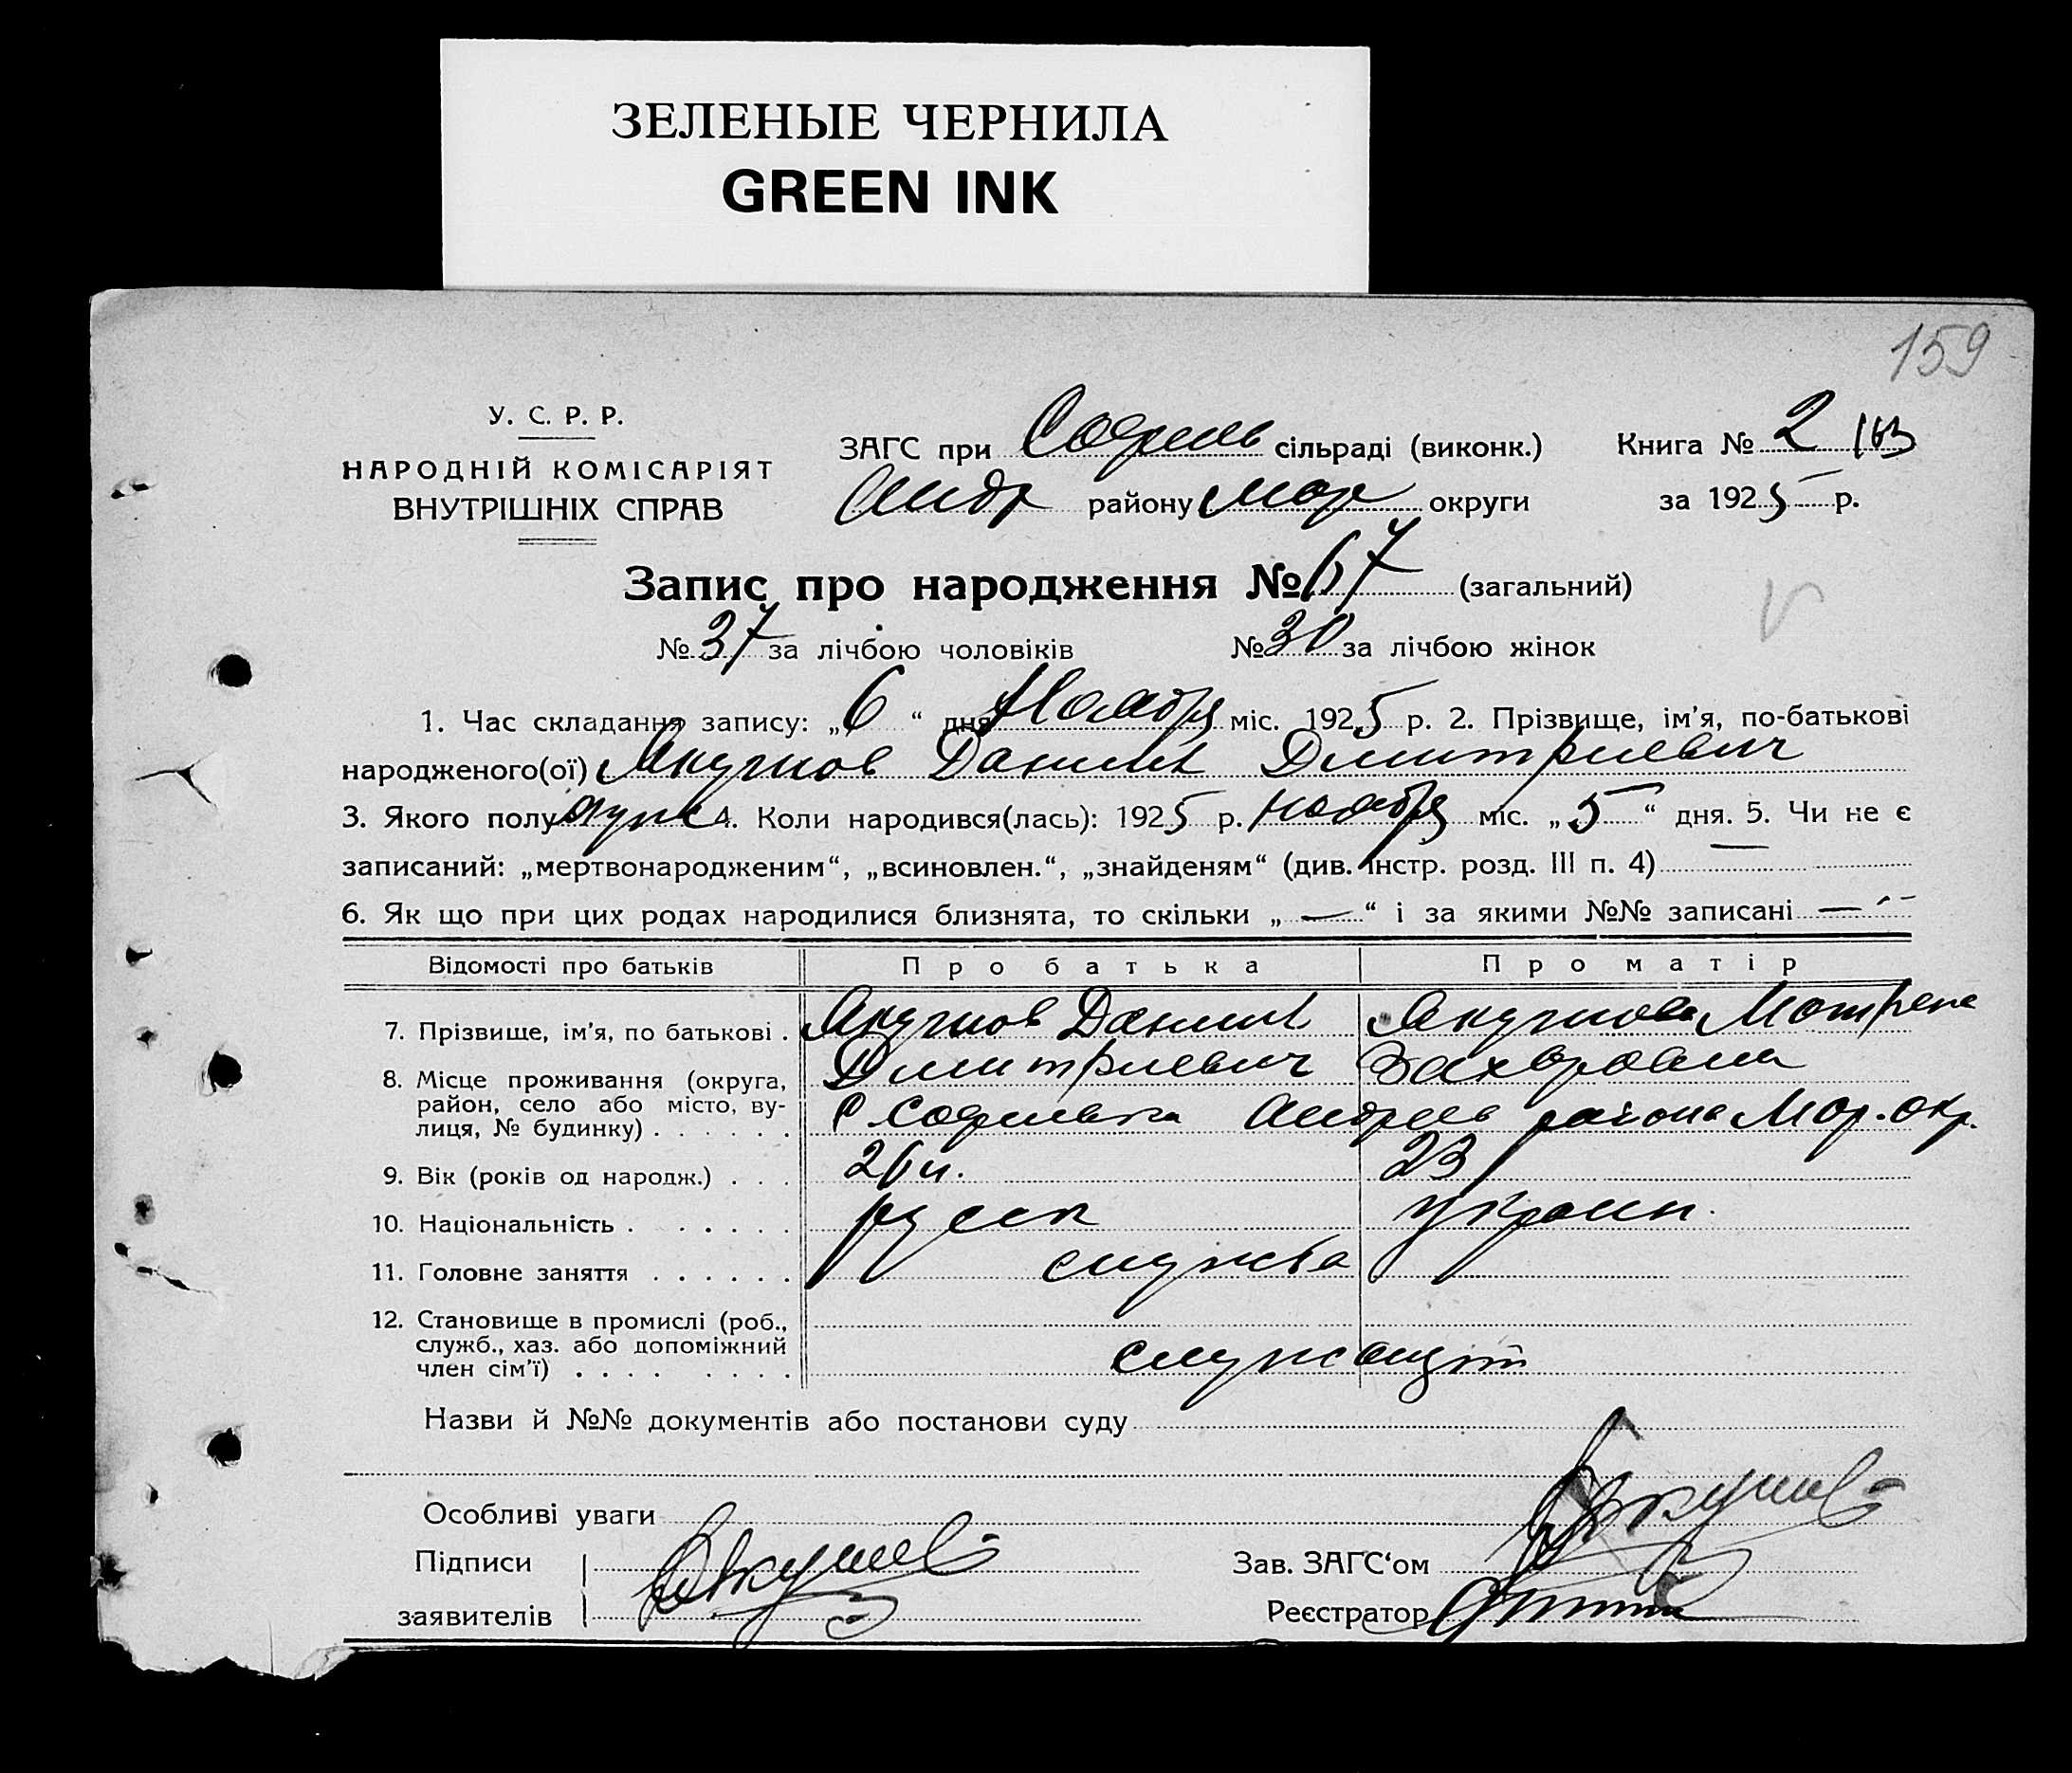 ЗЕЛЕНЫЕ ЧЕРНИЛА
GREEN INK
159
У. С. Р. Р.
НАРОДНІЙ КОМІСАРІЯТ
ВНУТРІШНІХ СПРАВ
ЗАГС при Софиев сільраді (виконк.) Книга № 2 163
Андр району Мар округи за 1925 р.
Запис про народження № 67 (загальний)
№ 37 за лічбою чоловіків № 30 за лічбою жінок
1. Час складання запису: „6“ дня Ноября міс. 1925 р. 2. Прізвище, ім’я, по-батькові
народженого(ої) Якушов Даниил Дмитриевич
3. Якого полу муж 4. Коли народився(лась): 1925 р. ноября міс. „5“ дня. 5. Чи не є
записаний: „мертвонародженим“, „всиновлен.“, „знайденям“ (див. інстр. розд. III п. 4) —
6. Як що при цих родах народилися близнята, то скільки „—“ і за якими №№ записані —
Відомості про батьків Про батька Про матір
7. Прізвище, ім’я, по батькові . Якушов Даниил Якушова Матрена
Дмитриевич Захаровна
8. Місце проживання (округа,
район, село або місто, ву-
лиця, № будинку) . . . . . . С Софиевка Андреев района Мар. окр.
9. Вік (років од народж.) . . . 26 л. 23
10. Національність . . . . . . русск украин.
11. Головне заняття . . . . . . служба
12. Становище в промислі (роб.,
служб., хаз. або допоміжний
член сім’ї) . . . . . . . . служащий
Назви й №№ документів або постанови суду
Особливі уваги
Підписи Якушов
заявителів
Зав. ЗАГС‘ом Якушов
Реєстратор